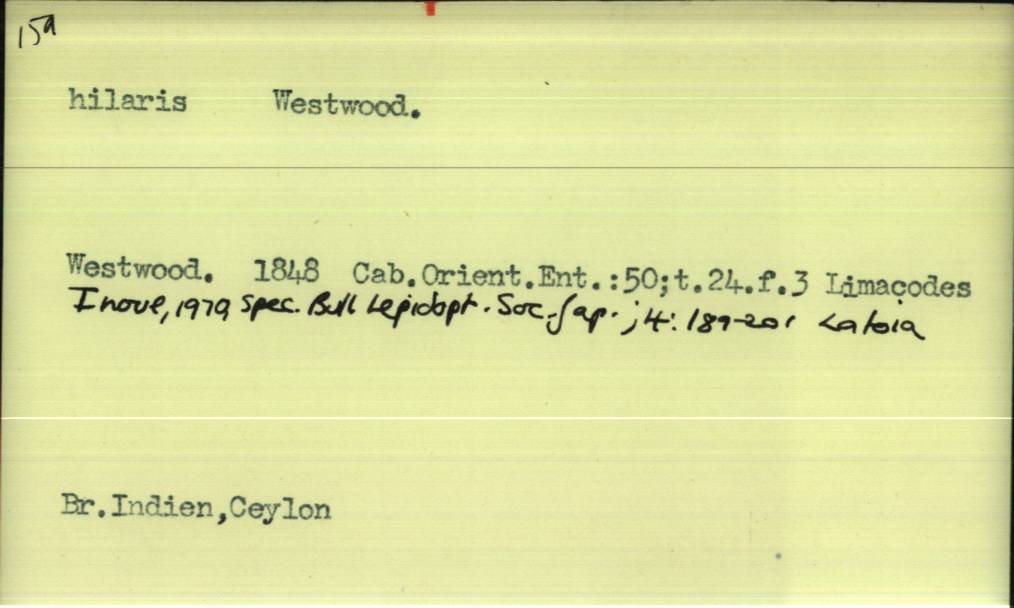 159
hilaris Westwood.
Westwood. 1848 Cab.Orient.Ent.:50;t.24.f.3 Limacodes
Inoue, 1970, spec. Bull Lepidopt. Soc. Jap. ;4: 189-201 Latoia
Br.Indien,Ceylon